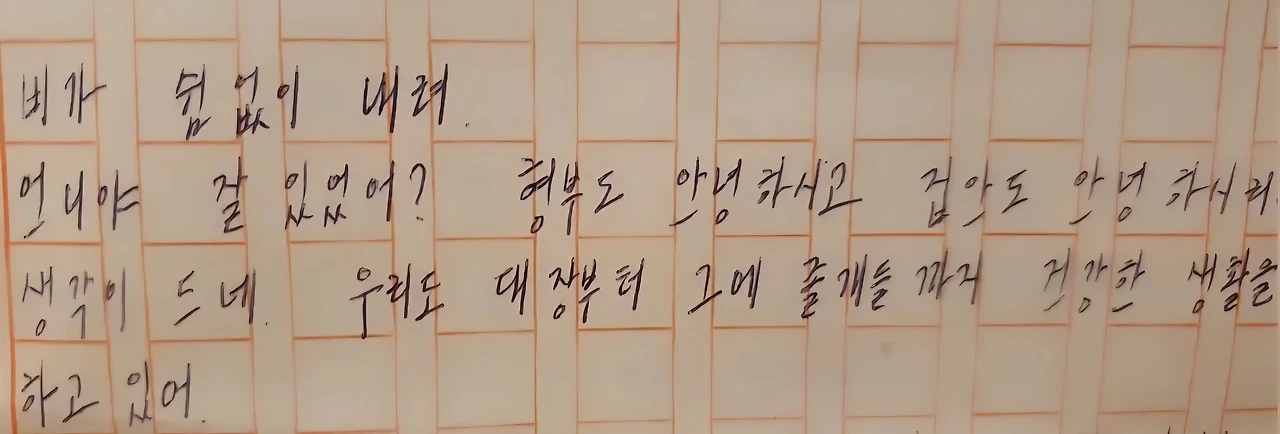 비가 쉼없이 내려.
언니야 잘 있었어? 형부도 안녕하시고 집안도 안녕 하시리
생각이 드네. 우리도 대장부터 그에 졸개들 까지 건강한 생활을
하고 있어.